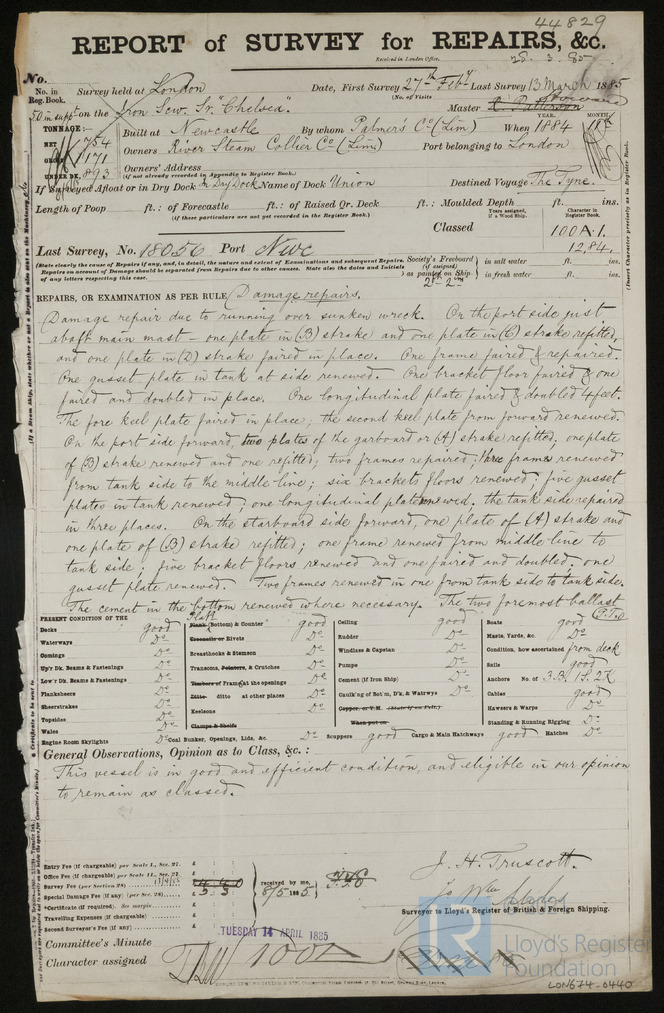 44829
REPORT of SURVEY for REPAIRS, &c.
Received in London Office, 28. 3. 85
No.
No. in Reg. Book. Survey held at London Date, First Survey 27th Feby Last Survey 13 March 1885
(No. of Visits
50 in suppt on the Iron Scw. Sr. "Chelsea". Master
TONNAGE:— Built at Newcastle By whom Palmer's Co (Lim) When 1884
YEAR. MONTH.
NET 754
GROSS 1171 Owners River Steam Collier Co (Lim) Port belonging to London
UNDER DK. 893 Owners' Address
(if not already recorded in Appendix to Register Book.)
If Surveyed Afloat or in Dry Dock in Dry Dock Name of Dock Union Destined Voyage The Tyne.
Length of Poop ft.: of Forecastle ft.: of Raised Qr. Deck ft.: Moulded Depth ft. ins.
(If these particulars are not yet recorded in the Register Book.)
Years assigned, if a Wood Ship. Character in Register Book.
Classed 100 A.1.
12,84,
Last Survey, No. 18056 Port Nwc
(State clearly the cause of Repairs if any, and, in detail, the nature and extent of Examinations and subsequent Repairs.
Repairs on account of Damage should be separated from Repairs due to other causes. State also the dates and Initials
of any letters respecting this case.
Society's Freeboard (if assigned) as painted on Ship.
in salt water ft. ins.
in fresh water ft. ins.
REPAIRS, OR EXAMINATION AS PER RULE, (Damage repairs.
Damage repair due to running over sunken wreck. On the port side just
abaft main mast – one plate in (B) strake and one plate in (C) strake refitted,
and one plate in (D) strake faired in place. One frame faired & repaired.
One gusset plate in tank at side renewed. One bracket floor faired & one
faired and doubled in place. One longitudinal plate faired & doubled 4 feet.
The fore keel plate faired in place; the second keel plate from forward renewed.
On the port side forward, two plates of the garboard or (A) strake refitted; one plate
of (B) strake renewed and one refitted; two frames repaired; three frames renewed
from tank side to the middle line; six brackets floors renewed; five gusset
plates in tank renewed; one longitudinal plate renewed. the tank side repaired
in three places. On the starboard side forward, one plate of (A) strake and
one plate of (B) strake refitted; one frame renewed from middle line to
tank side; five bracket floors renewed and one faired and doubled; one
gusset plate renewed. Two frames renewed in one from tank side to tank side.
The cement in the bottom renewed where necessary. The two foremost ballast
(P.T.O
PRESENT CONDITION OF THE
Decks good
Waterways Do
Comings Do
Up'r Dk. Beams & Fastenings Do
Low'r Dk. Beams & Fastenings Do
Planksheers Do
Sheerstrakes Do
Topsides Do
Wales Do
Engine Room Skylights Do
Plank (Bottom) & Counter good
Treenails or Rivets Do
Breasthooks & Stemson Do
Transoms, Pointers, & Crutches Do
Timbers of Frame at the openings Do
Ditto ditto at other places Do
Keelsons Do
Clamps & Shelfs
Coal Bunker, Openings, Lids, &c. Do
Ceiling good
Rudder Do
Windlass & Capstan Do
Pumps Do
Cement (If Iron Ship) Do
Caulk'ng of Bot'm, D'k, & Watrwys Do
Copper, or Y.M. (State if on Felt.)
When put on
Scuppers good Cargo & Main Hatchways good Hatches Do
Boats good
Masts, Yards, &c. Do
Condition, how ascertained from deck
Sails good
Anchors No. of 3.B. 1.S. 2K
Cables good
Hawsers & Warps Do
Standing & Running Rigging Do
General Observations, Opinion as to Class, &c.:
This vessel is in good and efficient condition, and eligible in our opinion
to remain as classed.
Entry Fee (if chargeable) per Scale I., Sec. 27. £
Office Fee (if chargeable) per Scale II., Sec. 27. £
Survey Fee (per Section 28) £
Special Damage Fee (if any) (per Sec. 28) £ 3.3
*Certificate (if required). See margin £
Travelling Expenses (if chargeable) £
Second Surveyor's Fee (if any) £
received by me, 8/5 1885
J. H. Truscott.
Surveyor to Lloyd's Register of British & Foreign Shipping.
TUESDAY 14 APRIL 1885
Committee's Minute
Character assigned 100A
Lloyd's Register
Foundation
LON674-0440